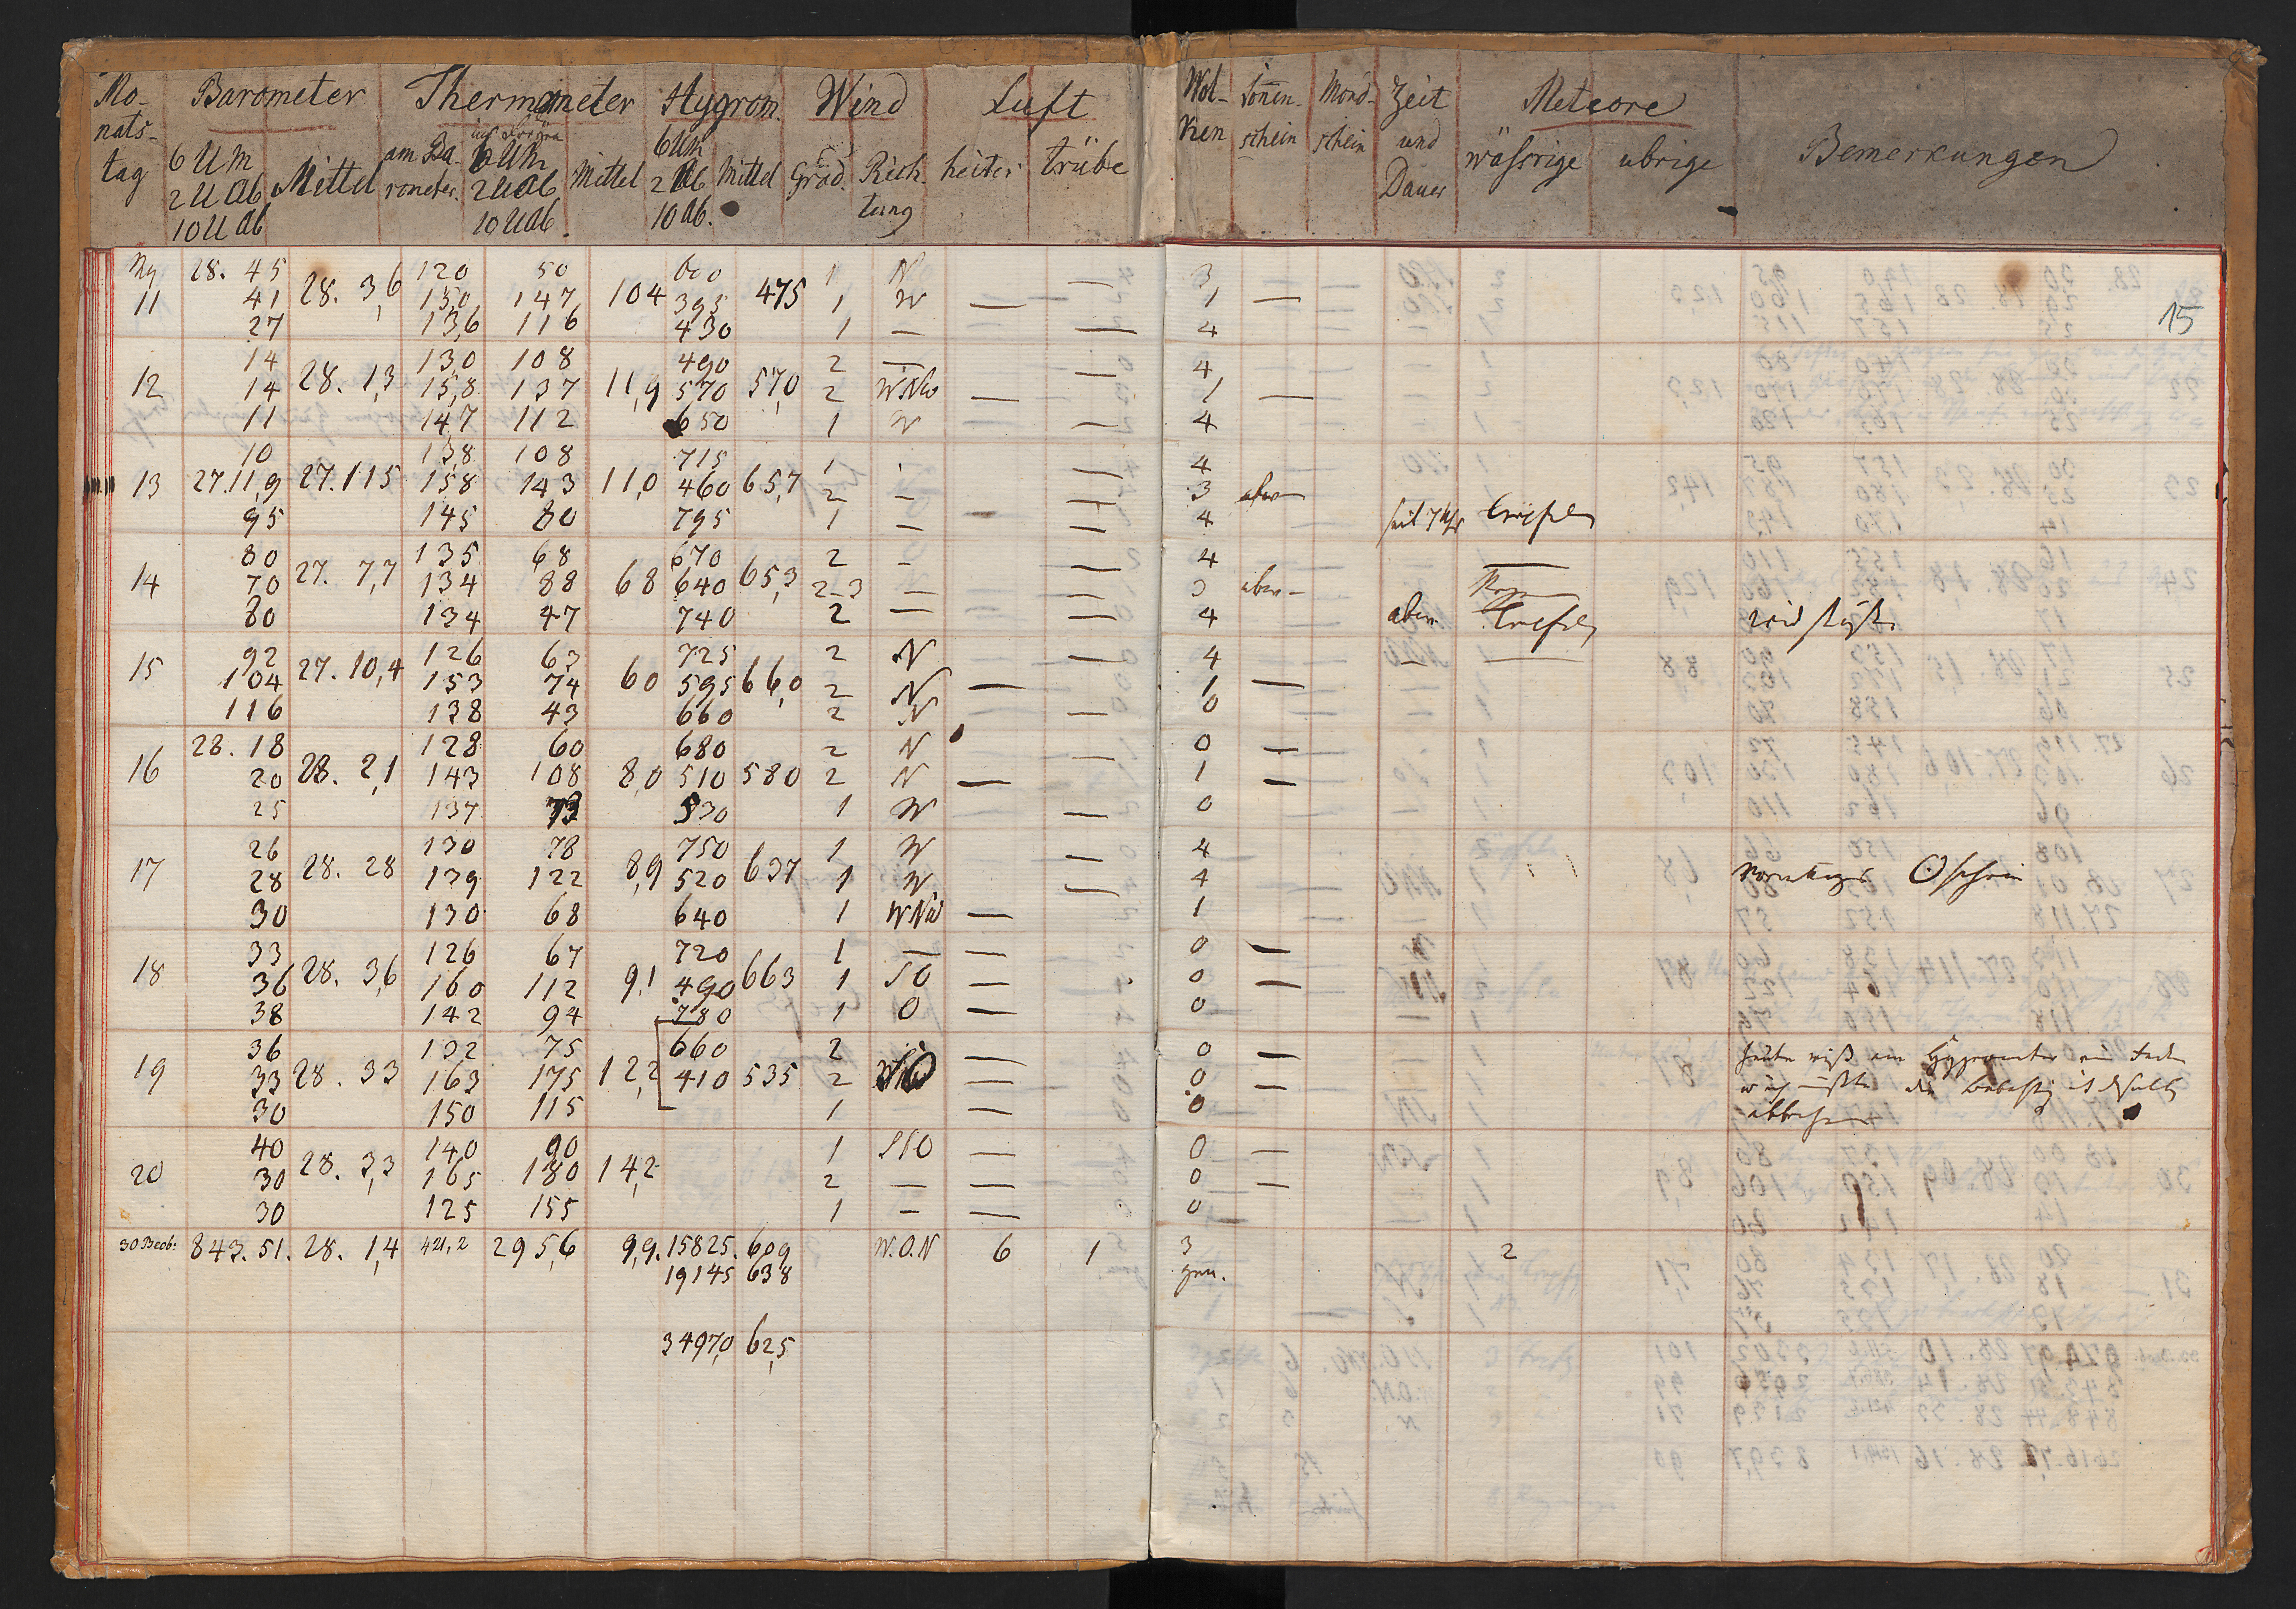 Mo- Barometer Thermometer Hygrom. Wind Luft Wol- Sonnen- Mond- Zeit Meteore
nats- ken schein schein und wäßrige übrige Bemerkungen
tag 6 UM Mittel am Ba- 6 UM Mittel 6 UM Mittel Grad. Rich- heiter trübe Dauer
2 U Ab rometer. 2 U Ab 2 Ab tung
10 U Ab 10 U Ab. 10 Ab.
15
28. 45 120 50 600 1 N — 3
11 41 28. 3,6 15,0 147 104 395 475 1 W — 1 —
27 13,6 116 430 1 — — 4
14 13,0 108 490 2 — — 4
12 14 28. 1,3 15,8 137 11,9 570 57,0 2 WNW — 1 —
11 14,7 112 650 1 W — 4
10 13,8 108 715 1 — 4
13 27. 11,9 27. 115 158 143 11,0 460 65,7 2 — — 3
95 145 80 795 1 — — 4
80 135 68 670 2 — — 4
14 70 27. 7,7 134 88 68 640 65,3 2-3 — — 3
80 134 47 740 2 — — 4
92 126 63 725 2 N — 4
15 104 27. 10,4 153 74 60 595 66,0 2 N — 1 —
116 138 43 660 2 N — 0
28. 18 128 60 680 2 N — 0 —
16 20 28. 2,1 143 108 8,0 510 580 2 N — 1 —
25 137 73 530 1 W — 0
26 130 78 750 1 W — 4
17 28 28. 28 139 122 8,9 520 637 1 W — 4
30 130 68 640 1 WNW — 1
33 126 67 720 1 — — 0 —
18 36 28. 3,6 160 112 9,1 490 663 1 SO — 0 —
38 142 94 780 1 O — 0
36 132 75 660 2 — 0 —
19 33 28. 33 163 175 12,2 410 535 2 — 0 —
30 150 115 1 — — 0
40 140 90 1 SSO — 0 —
20 30 28. 3,3 165 180 14,2 2 — — 0 —
30 125 155 1 — — 0
30 Beob: 843. 51. 28. 1,4 421,2 295,6 9,9. 15825. 609 W.O.N 6 1 3 2
19145 638
3497,0 62,5